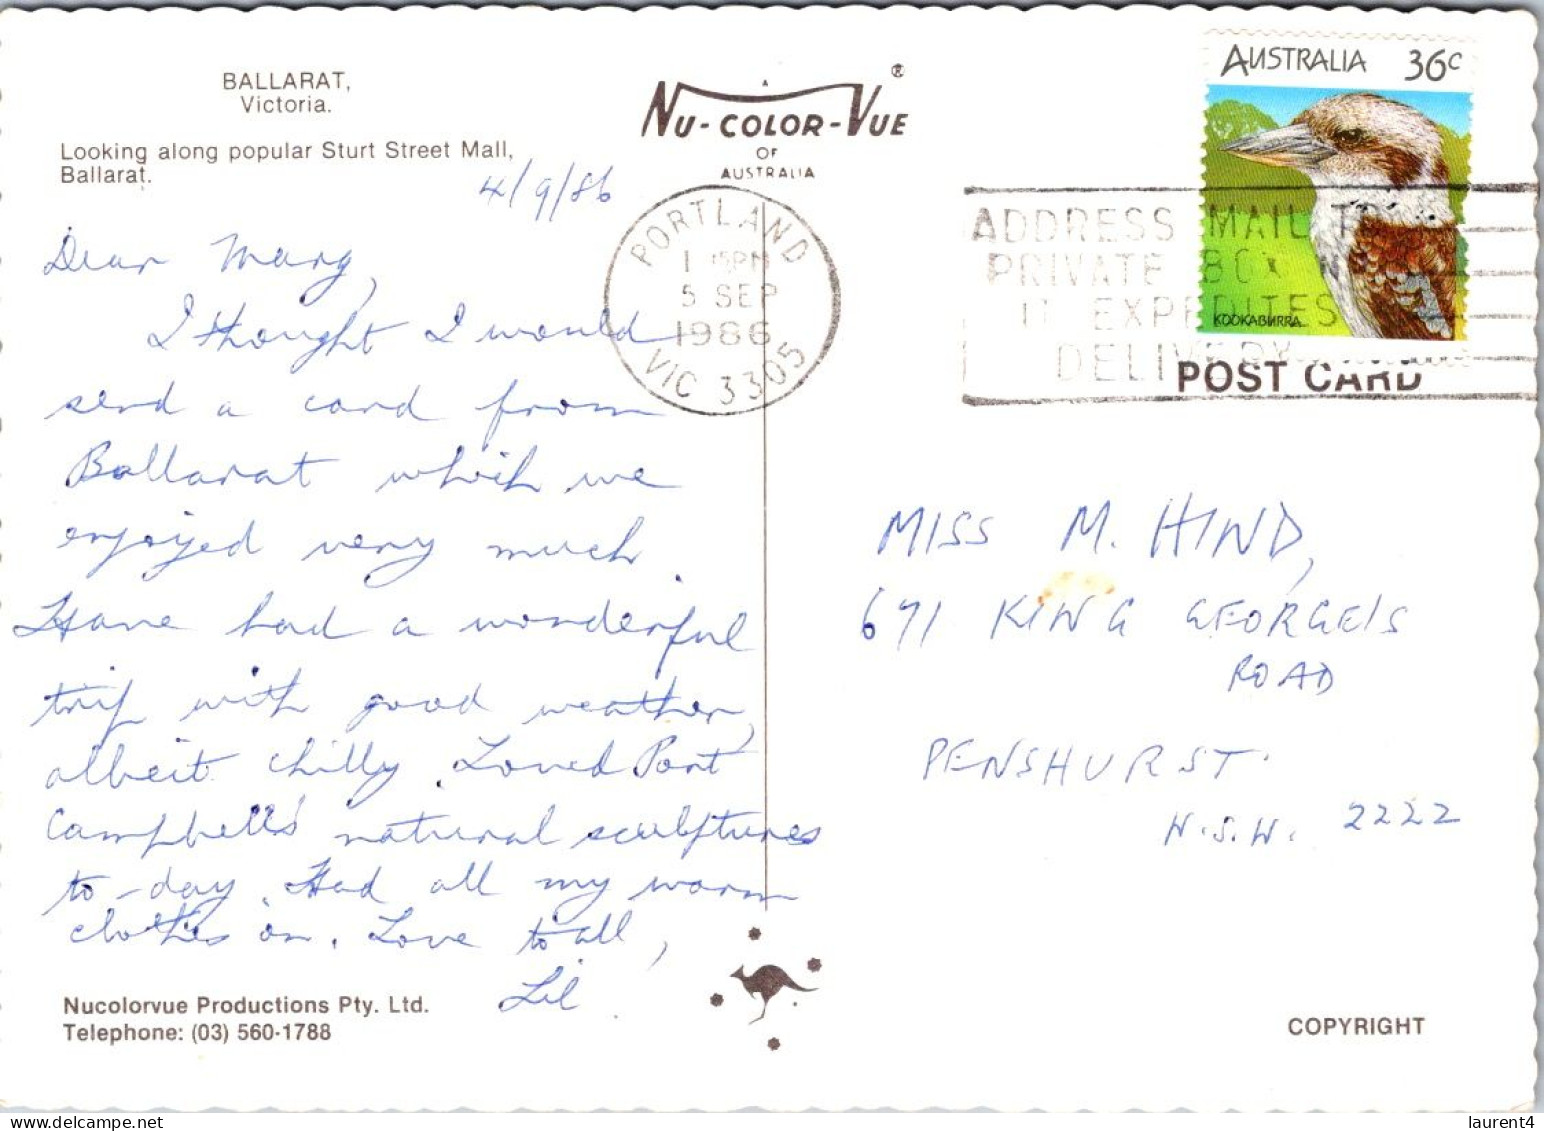 BALLARAT,
Victoria.
Looking along popular Sturt Street Mall,
Ballarat.
A
NU-COLOR-VUE®
OF
AUSTRALIA
4/9/86
Dear Marg,
I thought I would
send a card from
Ballarat which we
enjoyed very much.
Have had a wonderful
trip with good weather,
albeit chilly. Loved Port
Campbell's natural sculptures
to-day. Had all my warm
clothes on. Love to all,
Lil.
Nucolorvue Productions Pty. Ltd.
Telephone: (03) 560-1788
PORTLAND
1 PM
5 SEP
1986
VIC 3305
ADDRESS MAIL TO
PRIVATE BOX
IT EXPEDITES
DELIVERY
AUSTRALIA 36c
KOOKABURRA
POST CARD
MISS M. HIND,
671 KING GEORGE'S
ROAD
PENSHURST.
N.S.W. 2222
COPYRIGHT
laurent4